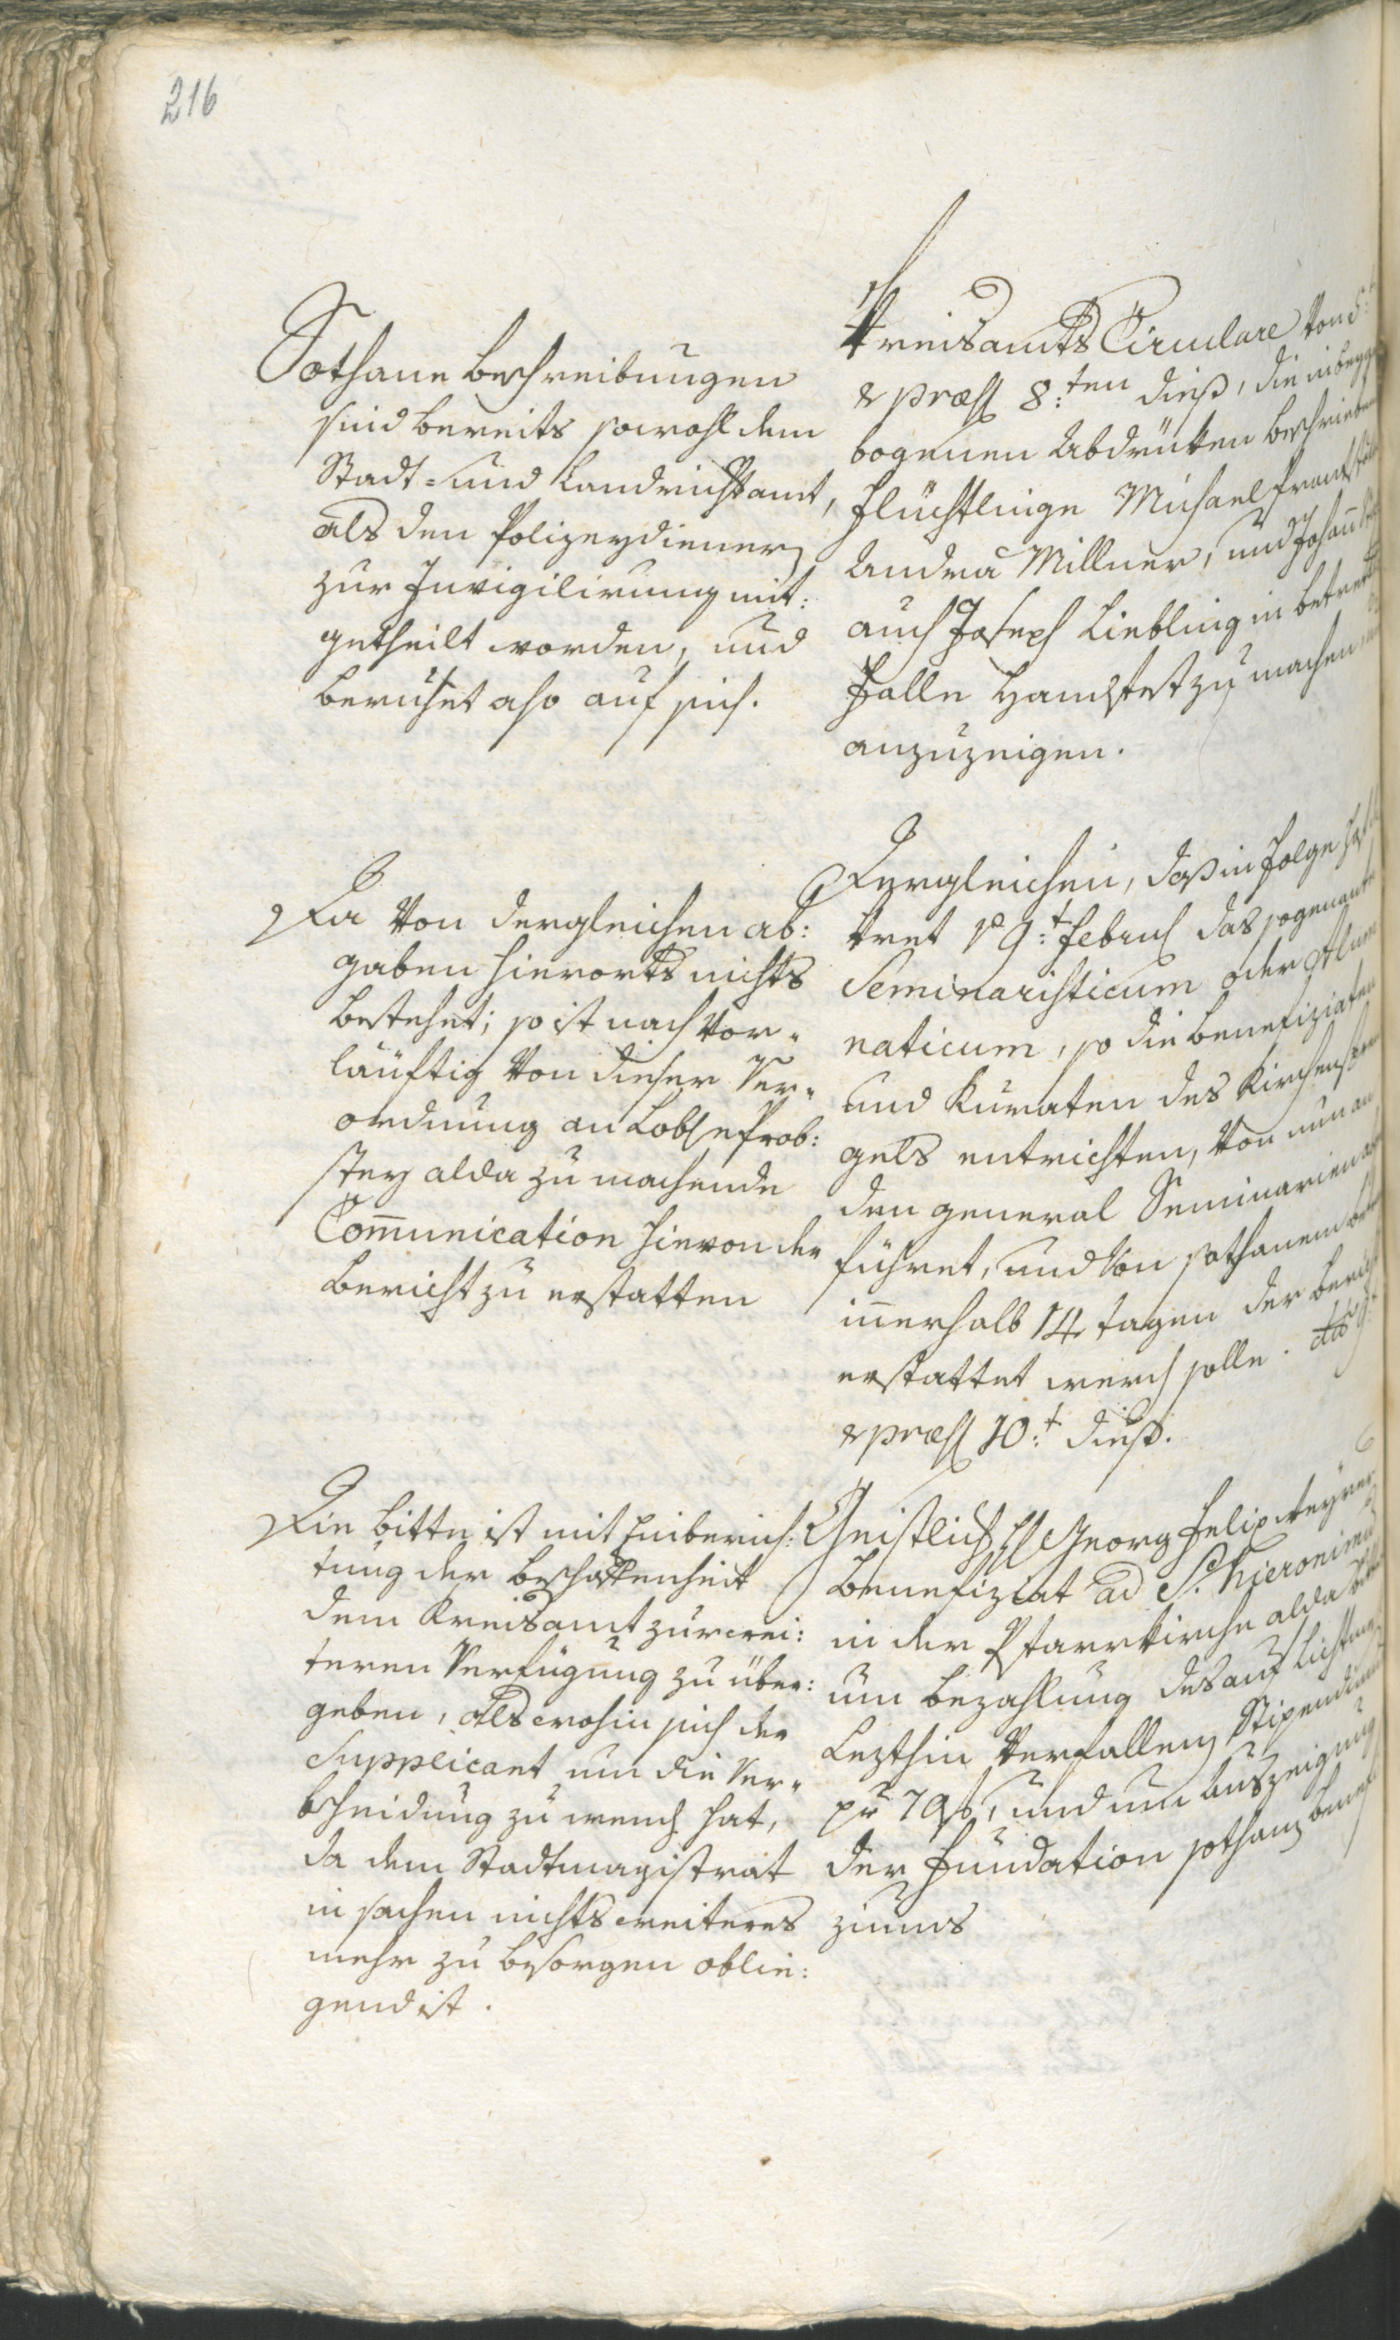 216
Sothane Beschreibungen
sind bereits sowohl dem
Stadt- und Landrichteramt,
als den Polizeydienern
zur Invigilirung mit:
getheilt worden, und
beruhet also auf sich.
Kreisamts Circulare von 5:t
& præs 8:ten dieß, die in beyge
bogenen Abdrücken beschriebenen
Flüchtlinge Michael
Andrä Millner, und Johann
auch Joseph Liebling in betrettungs
Falle Handfest zu machen und
anzuzeigen.
Da von dergleichen ab:
gaben hierorts nichts
bestehet; so ist nach vor-
läuftig von dieser Ver-
ordnung an Lobl. Prob:
stey alda zu machende
Communication hievon der
Bericht zu erstatten
Dergleichen, daß in Folge
Dret 19:t Febru das sogenante
Seminaristicum oder Alum
naticum, so die Benefiziaten
und Kuraten des Kirchenspren
gels entrichten, von nun an
den general Seminarien
führet, und von sothanem
innerhalb 14 tagen der Bericht
erstattet werden solle. dto 9:t
& præs 10:t dieß.
Die bitte ist mit Einberich:
tung der Beschaffenheit
dem Kreisamt zur wei:
teren Verfügung zu über:
geben, als wohin sich der
Supplicant um die Ver-
bscheidung zu wend hat,
da dem Stadtmagistrat
in sachen nichts weiteres
mehr zu besorgen oblie:
gend ist.
Geistlich H Georg Felix
Benefiziat ad S. Hieronimum
in der Pfarrkirche alda bittet
um bezahlung des auf Lichtmeß
Letzthin verfallenen Stipendiums
pr 79 f, und um Auszeigung
der Fundation sothanen Benefi
ziums